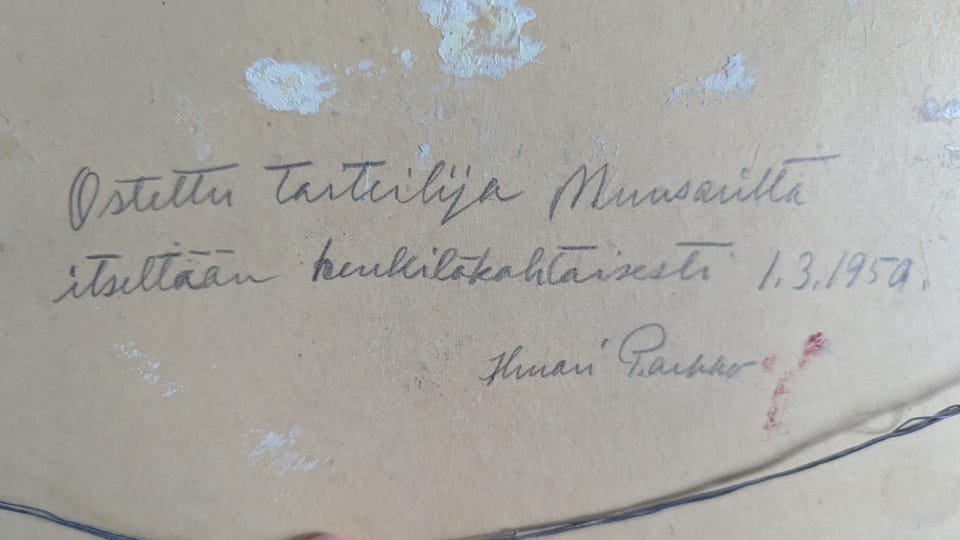 Ostettu taiteilija Muusarilta
itseltään henkilökohtaisesti 1.3.1959.
Ilmari